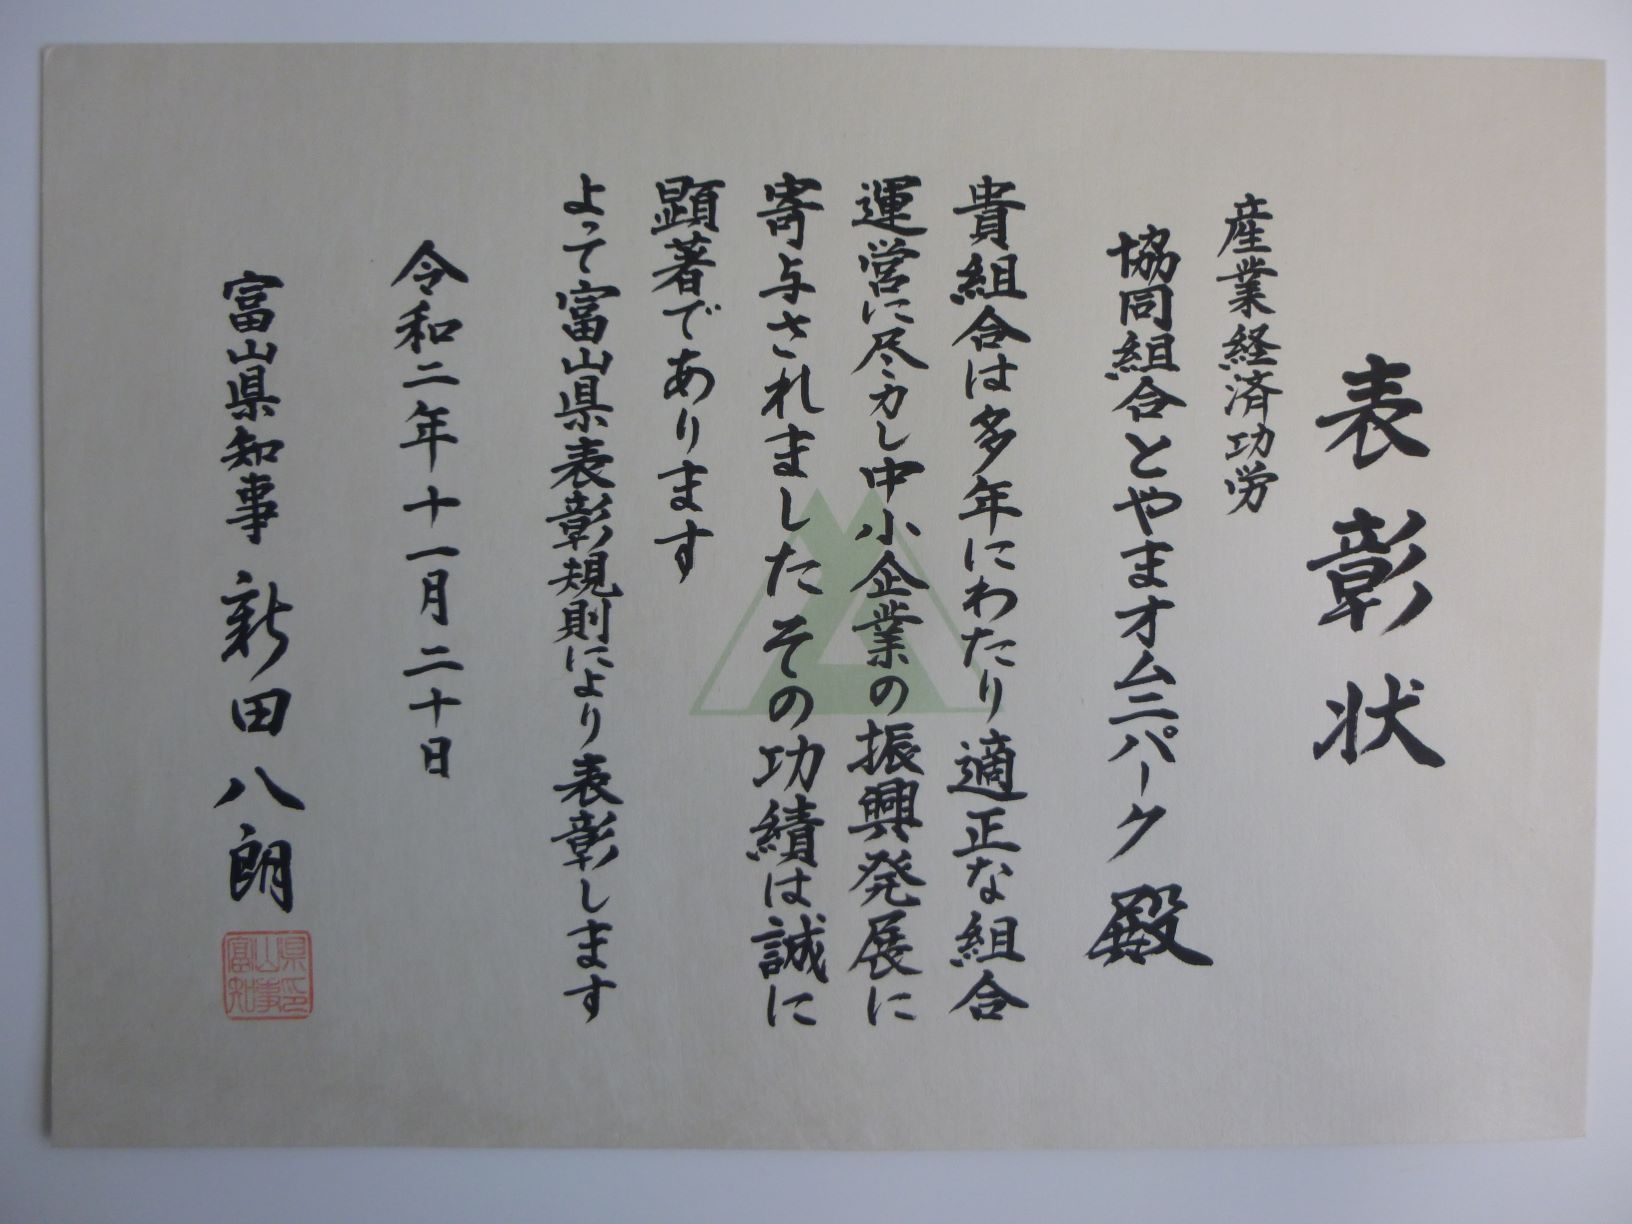 表彰状
産業経済功労
協同組合とやまオムニパーク殿
貴組合は多年にわたり適正な組合
運営に尽力し中小企業の振興発展に
寄与されましたその功績は誠に
顕著であります
よって富山県表彰規則により表彰します
令和二年十一月二十日
富山県知事 新田八朗
富山県知事印